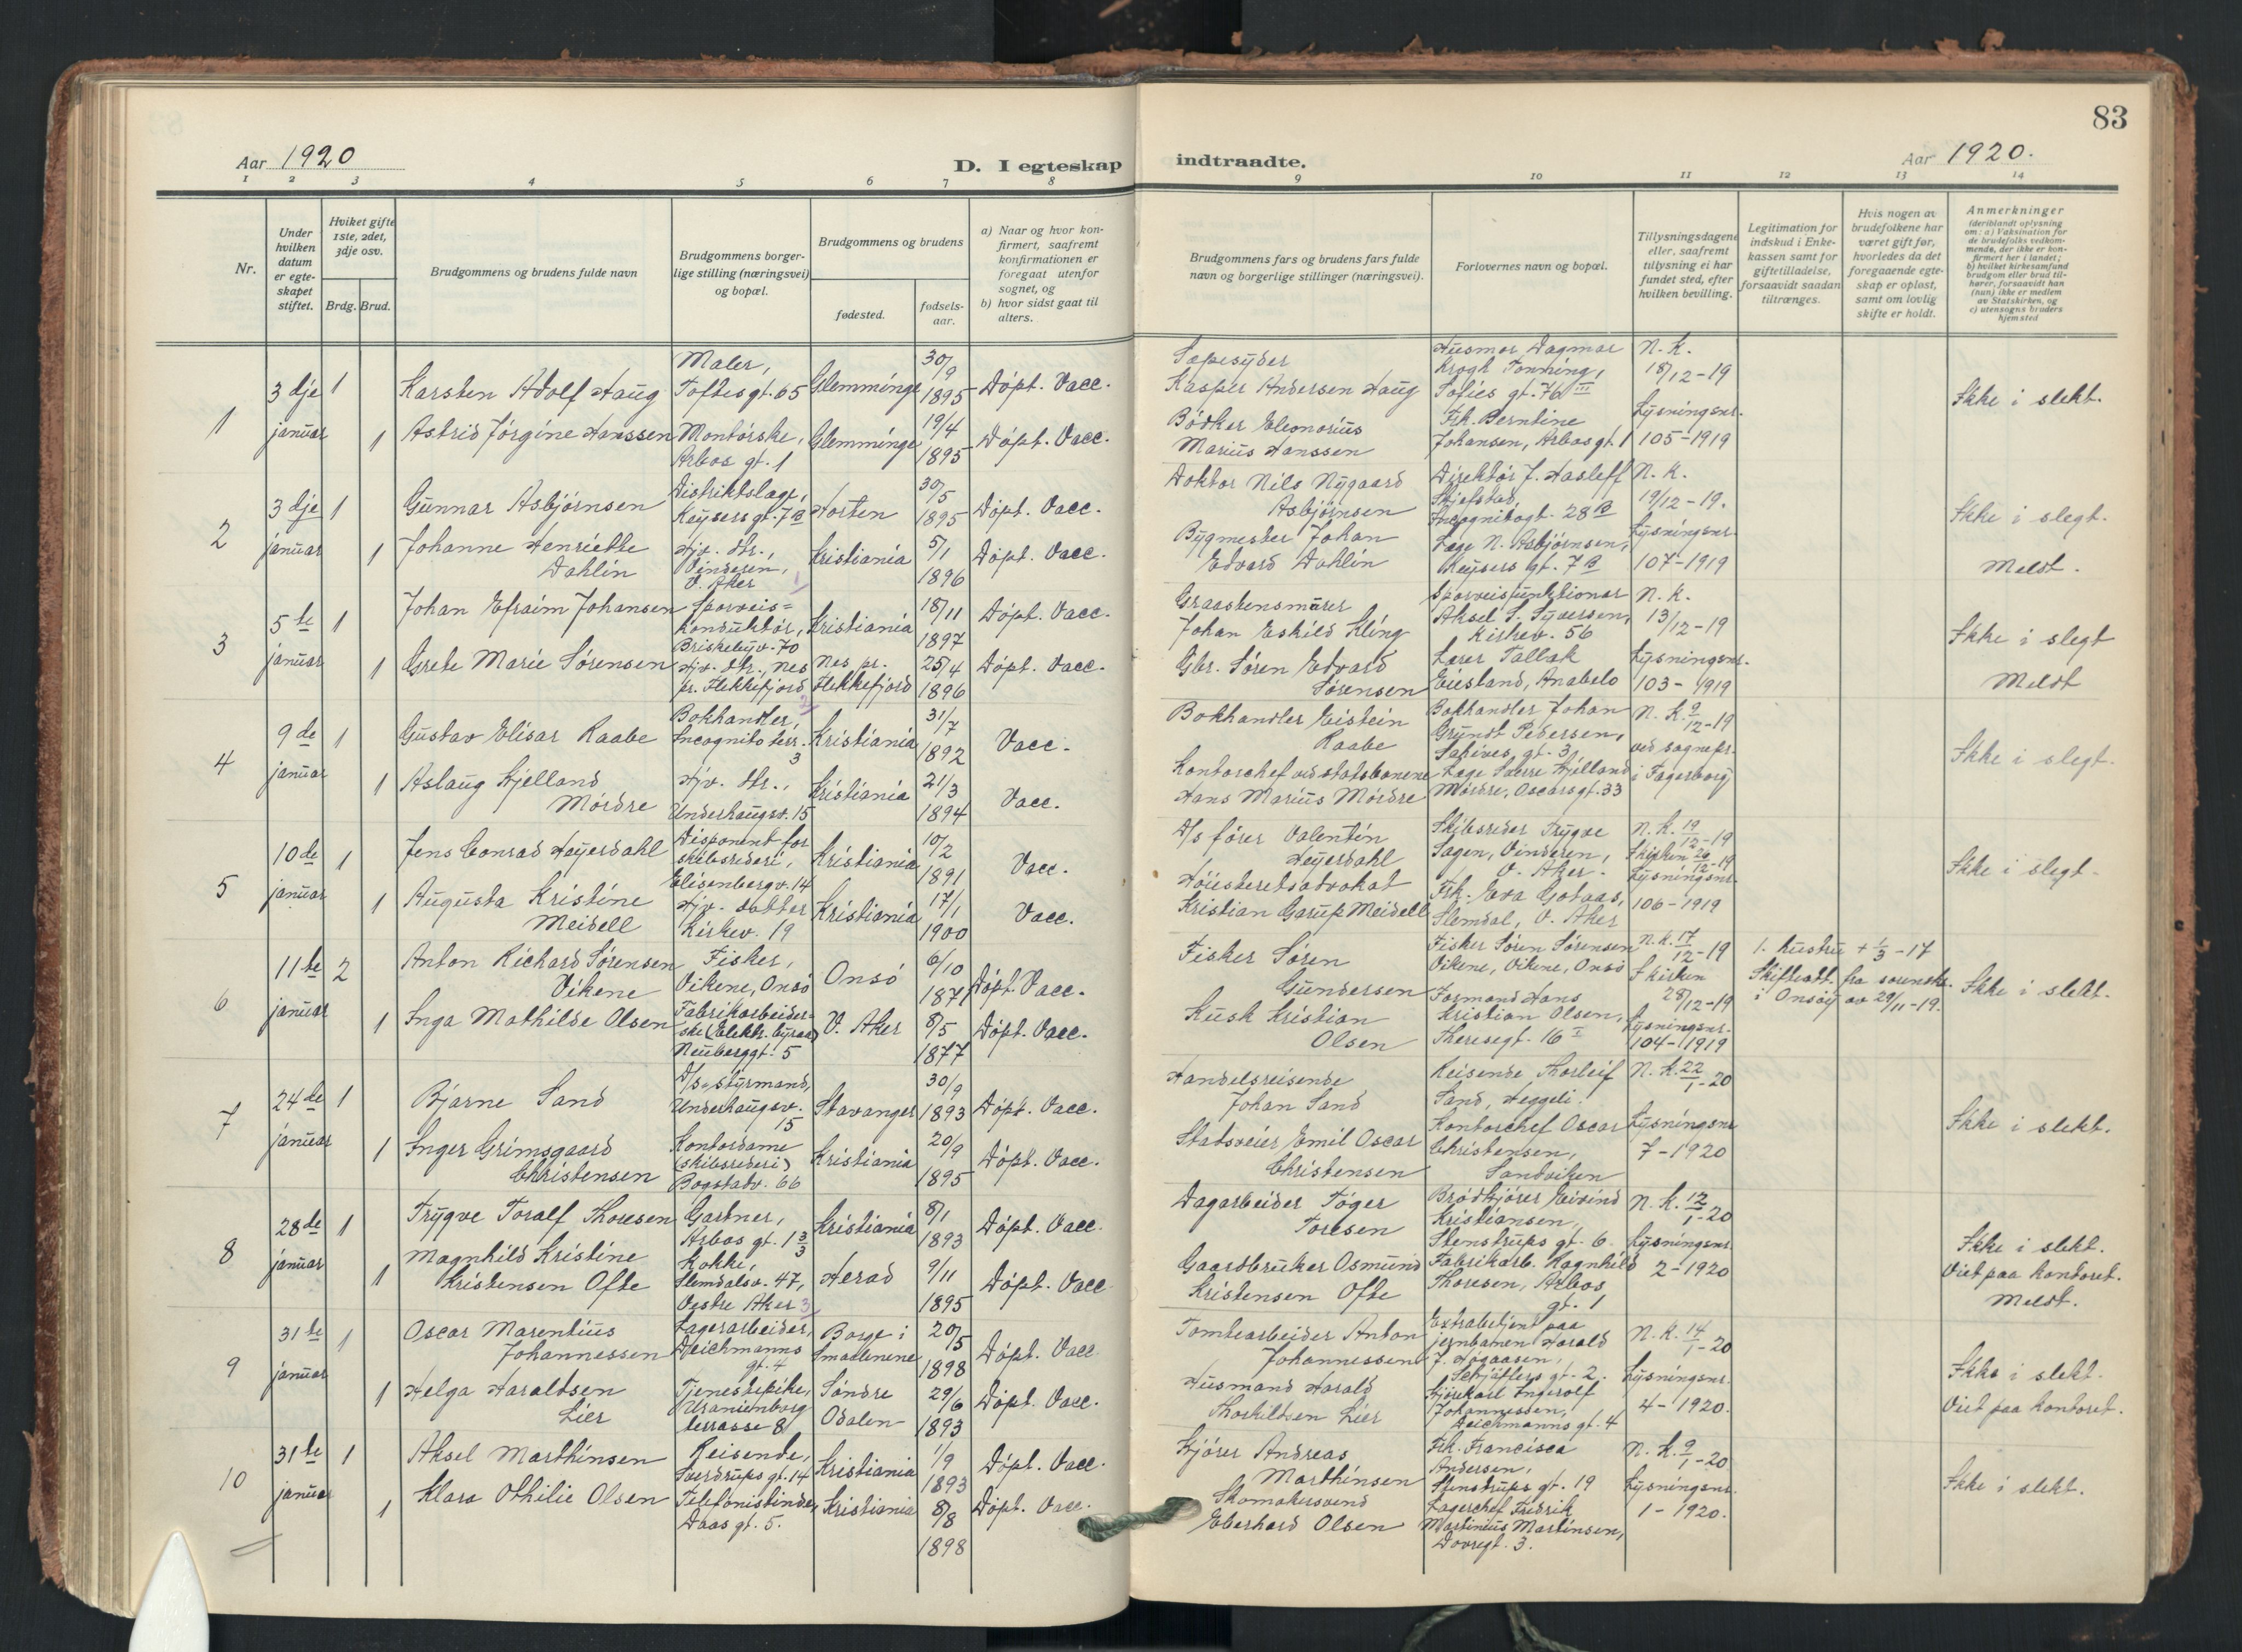 83
Aar 1920
D. I egteskap
indtraadte.
Aar 1920.
1 2 3 4 5 6 7 8 9 10 11 12 13 14
Nr.
Under hvilken datum er egteskapet stiftet.
Hviket gifte 1ste, 2det, 3dje osv.
Brdg. Brud.
Brudgommens og brudens fulde navn
Brudgommens borgerlige stilling (næringsvei) og bopæl.
Brudgommens og brudens
fødested.
fødselsaar.
a) Naar og hvor konfirmert, saafremt konfirmationen er foregaat utenfor sognet, og
b) hvor sidst gaat til alters.
Brudgommens fars og brudens fars fulde navn og borgerlige stillinger (næringsvei).
Forlovernes navn og bopæl.
Tillysningsdagene eller, saafremt tillysning ei har fundet sted, efter hvilken bevilling.
Legitimation for indskud i Enkekassen samt for giftetilladelse, forsaavidt saadan tiltrænges.
Hvis nogen av brudefolkene har været gift før, hvorledes da det foregaaende egteskap er opløst, samt om lovlig skifte er holdt.
Anmerkninger
(deriblandt oplysning om: a) Vaksination for de brudefolks vedkommende, der ikke er konfirmert her i landet; b) hvilket kirkesamfund brudgom eller brud tilhører, forsaavidt han (hun) ikke er medlem av Statskirken, og c) utensogns bruders hjemsted
1
3dje januar
1
Karsten Adolf Haug
Maler, Toftesgt. 65
Glemminge
30/9 1895
Døpt. Vacc.
Sæpesyder Kasper Andersen Haug
Husmor Dagmar Krogh Tonning, Sofies gt. 76 III
N. K. 18/12-19
Ikke i slekt.
1
Astrid Jørgine Hanssen
Montørske, Arbos gt. 1
Glemminge
19/4 1895
Døpt. Vacc.
Bødker Eleonorius Marius Hanssen
Frk. Berntine Johansen, Arbos gt. 1
Lysningsnr. 105-1919
2
3dje januar
1
Gunnar Asbjørnsen
Distriktslæge, Keysers gt. 7 B
Horten
30/5 1895
Døpt. Vacc.
Doktor Nils Nygaard Asbjørnsen
Direktør J. Hasleff Skjefstad, Incognitogt. 28 B
N. K. 19/12-19.
Ikke i slegt.
1
Johanne Henriette Dahlin
Hjv. dtr., Vinderen, V. Aker
Kristiania
5/1 1896
Døpt. Vacc.
Bygmester Johan Edvard Dahlin
Læge N. Asbjørnsen, Keysers gt. 7 B
Lysningsnr. 107-1919
Meldt.
3
5te januar
1
Johan Efraim Johansen
Sporveis= konduktør, Briskebyv. 70
Kristiania
18/11 1897
Døpt. Vacc.
Graastensmurer Johan Eskild Kling
Sporveisfunktionær Aksel S. Syversen, Kirkev. 56
N. K. 13/12-19
Ikke i slegt
1
Grete Marie Sørensen
Hjv. dtr., Nes pr. Flekkefjord
Nes pr. Flekkefjord
25/4 1896
Døpt. Vacc.
Gbr. Søren Edvard Sørensen
Lærer Tallak Eiesland, Anabelo
Lysningsnr. 103-1919
Meldt
4
9de januar
1
Gustav Elisar Raabe
Bokhandler, Incognito terr. 3
Kristiania
31/7 1892
Vacc.
Bokhandler Eistein Raabe
Bokhandler Johan Grundt Pedersen, gt. 3
N. K. 9/12-19 ved sognepr. i Fagerborg
Ikke i slegt.
1
Aslaug Kjelland Mørdre
Hjv. dtr., Underhaugsv. 15
Kristiania
21/3 1894
Vacc.
Kontorchef ved statsbanene Hans Marius Mørdre
Læge Sverre Kjelland Mørdre, Oscarsgt. 33
5
10de januar
1
Jens Conrad Heyerdahl
Disponent for skibsrederi, Elisenbergv. 14
Kristiania
10/2 1891
Vacc.
D/s fører Valentin Heyerdahl
Skibsreder Trygve Sagen, Vinderen, V. Aker.
N. K. 19/12-19 I kirken 26/12-19
Ikke i slegt.
1
Augusta Kristine Meidell
Hjv. datter Kirkev. 19
Kristiania
17/1 1900
Vacc.
Høiesteretsadvokat Kristian Garup Meidell
Frk. Eva Gotaas, Slemdal, V. Aker
Lysningsnr. 106-1919
6
11te januar
2
Anton Richard Sørensen Vikene
Fisker, Vikene, Onsø
Onsø
6/10 1871
Døpt. Vacc.
Fisker Søren Gundersen
Fisker Søren Sørensen Vikene, Vikene, Onsø
N. K. 17/12-19 I kirken 28/12-19
1. hustru + 1/3-17
Skifteatt. fra sorenskr. i Onsøy av 29/11-19.
Ikke i slekt.
1
Inga Mathilde Olsen
Fabrikarbeiderske (Elektr. byraa) Neuberggt. 5
V. Aker
8/5 1877
Døpt. Vacc.
Kusk Kristian Olsen
Formand Hans Kristian Olsen, Theresegt. 16 I
Lysningsnr. 104-1919
7
24de januar
1
Bjarne Sand
D/s-styrmand, Underhaugsv. 15
Stavanger
30/9 1893
Døpt. Vacc.
Handelsreisende Johan Sand
Reisende Thorleif Sand, Heggeli.
N. K. 22/1-20
Ikke i slekt.
1
Inger Grimsgaard Christensen
Kontordame (skibsrederi) Bogstadv. 66
Kristiania
20/9 1895
Døpt. Vacc.
Statsveier Emil Oscar Christensen
Kontorchef Oscar Christensen, Sandviken
Lysningsnr 7-1920
8
28de januar
1
Trygve Toralf Thoresen
Gartner, Arbos gt. 1
Kristiania
8/1 1893
Døpt. Vacc.
Dagarbeider Tøger Toresen
Brødkjører Eivind Kristiansen, Stenstrups gt. 6
N. K. 12/1-20
Ikke i slekt.
1
Magnhild Kristine Kristensen Ofte
Kokke, Slemdalsv. 47, Vestre Aker
Herad
9/11 1895
Døpt. Vacc
Gaardbruker Osmund Kristensen Ofte
Fabrikarb. Ragnhild Thoresen, Arbos gt. 1
Lysningsnr 2-1920
Viet paa kontoret.
Meldt.
9
31te januar
1
Oscar Marentius Johannessen
Lagerarbeider, Deichmanns gt. 4
Borge i Smaalenene
20/5 1898
Døpt. Vacc
Tomtearbeider Anton Johannessen
Extrabetjent paa jernbanen Harald J. Høgaasen, Schjøtlers gt. 2.
N. K. 14/1-20
Ikke i slekt.
1
Helga Haraldsen Lier
Tjenestepike, Uranienborg terrasse 8
Søndre Odalen
29/6 1893
Døpt. Vacc.
Husmand Harald Thorkildsen Lier
Kjørekarl Ingerolf Johannessen, Deichmanns gt. 4
Lysningsnr. 4-1920.
Viet paa kontoret.
10
31te januar
1
Aksel Marthinsen
Reisende, Sverdrups gt. 14
Kristiania
1/9 1893
Døpt. Vacc.
Kjører Andreas Marthinsen
Frk. Francisca Andersen, Stenstrups gt. 19
N. K. 9/1-20
Ikke i slekt.
1
Klara Othilie Olsen
Telefonistinde, Daas gt. 5.
Kristiania
8/8 1898
Døpt. Vacc.
Skomakersvend Eberhard Olsen
Lagerchef Fredrik Martinius Martinsen, Dovregt. 3.
Lysningsnr. 1-1920.